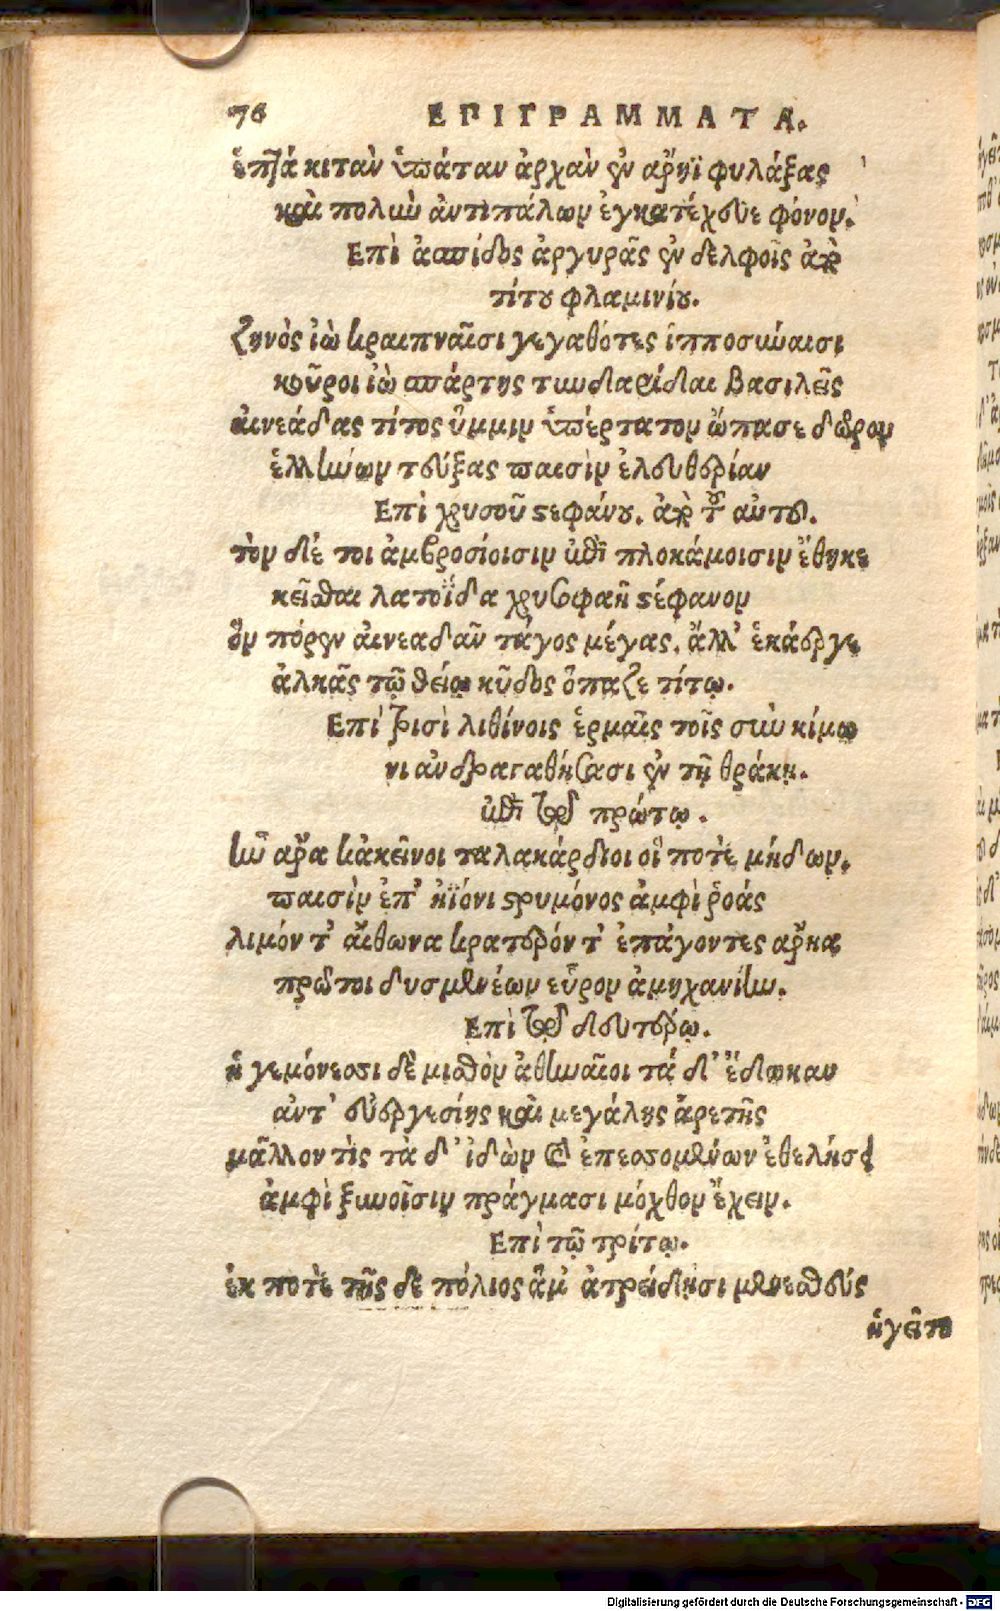 76 ΕΠΙΓΡΑΜΜΑΤΑ.
ἑπτάκι τὰν ὑπάταν ἀρχὰν ἐν ἄρηϊ φυλάξας
καὶ πολιῶ ἀντιπάλων ἐγκατέχευε φόνον.
Επὶ ἀσπίδος ἀργυρᾶς ἐν δελφοῖς παρὰ
τίτου φλαμινίου.
ζηνὸς ἰὼ κραιπναῖσι γεγαθότες ἱπποσύναισι
κοῦροι ἰὼ σπάρτης τυνδαρίδαι βασιλεῖς
αἰνεάδας τίτος ὔμμιν ὑπέρτατον ὤπασε δῶρον
ἑλλήνων τεύξας παισὶν ἐλευθερίαν
Επὶ χρυσοῦ στεφάνου. παρὰ τοῦ αὐτοῦ.
τὸν δέ τοι ἀμβροσίοισιν ἐπὶ πλοκάμοισιν ἔθηκε
κεῖσθαι λατοΐδα χρυσοφαῆ στέφανον
ὃν πόρεν αἰνεαδᾶν τάγος μέγας. ἄλλ' ἑκάεργε
ἀλκᾶς τῷ θείῳ κῦδος ὄπαζε τίτῳ.
Επὶ τρισὶ λιθίνοις ἑρμαῖς τοῖς σὺν κίμω
νι ἀνδραγαθήσασι ἐν τῇ θράκῃ.
ἐπὶ τῷ πρώτῳ.
ἦν ἄρα κἀκεῖνοι ταλακάρδιοι οἵ ποτὲ μήδων.
παισὶν ἐπ' ἠϊόνι στρυμόνος ἀμφὶ ῥοάς
λιμόν τ' αἴθωνα κρατερόν τ' ἐπάγοντες ἄρηα
πρῶτοι δυσμενέων εὗρον ἀμηχανίην.
Επὶ τῷ δευτέρῳ.
ἡγεμόνεσσι δὲ μισθὸν ἀθηναῖοι τά δ' ἔδωκαν
ἀντ' εὐεργεσίης καὶ μεγάλης ἀρετῆς
μᾶλλον τὶς τὰ δ' ἰδὼν καὶ ἐπεσσομένων ἐθελήσει
ἀμφὶ ξυνοῖσιν πράγμασι μόχθον ἔχειν.
Επὶ τῷ τρίτῳ.
ἐκ ποτὲ τῆς δὲ πόλιος ἅμ' ἀτρείδησι μενεσθεύς
ἡγεῖτο
Digitalisierung gefördert durch die Deutsche Forschungsgemeinschaft - DFG